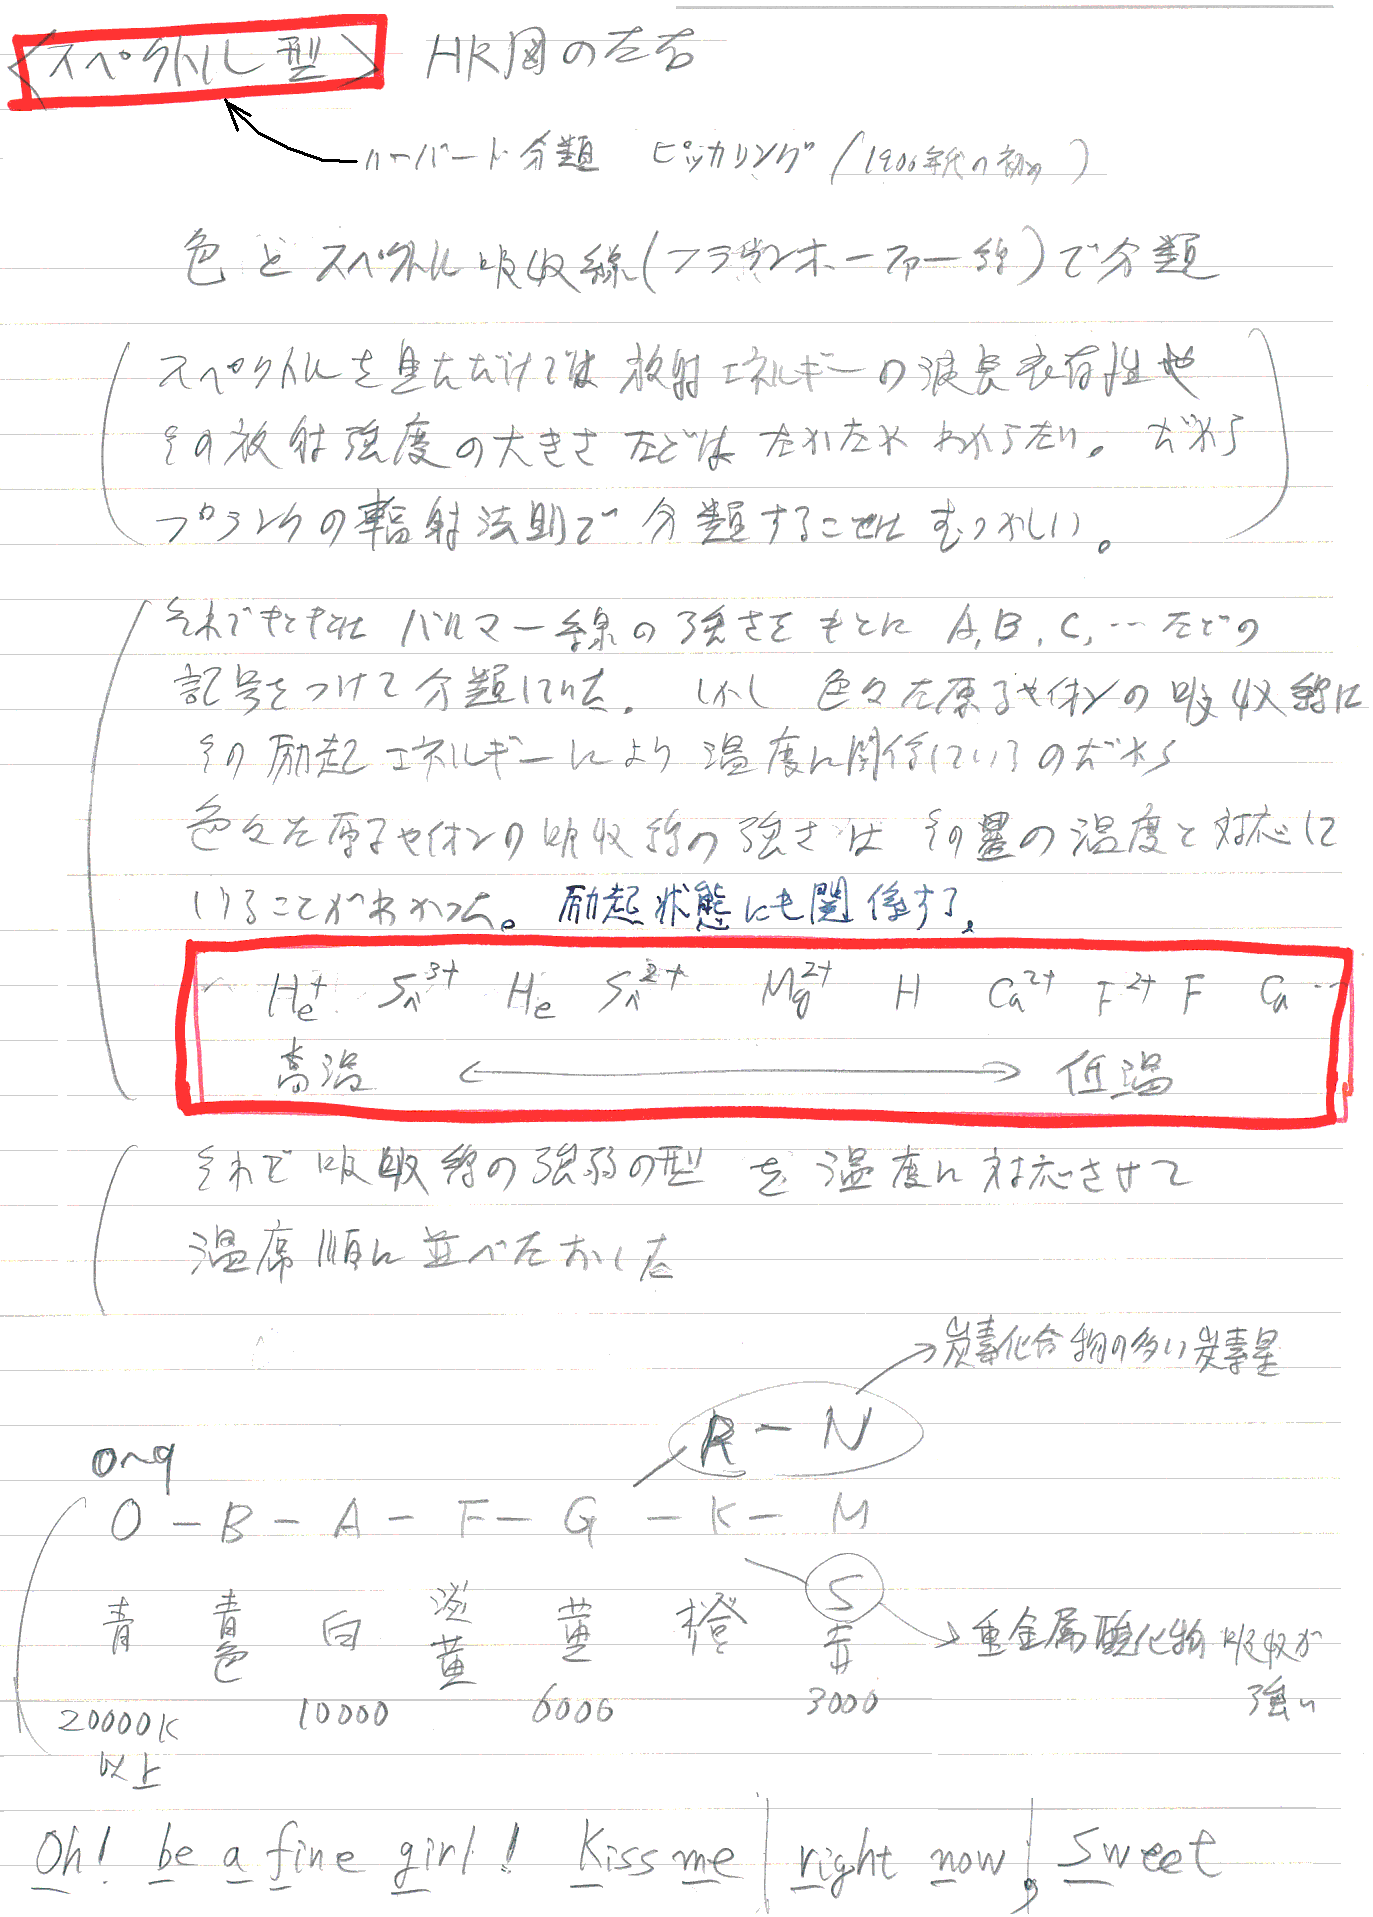 〈スペクトル型〉 HR図の左右
ハーバード分類 ピッカリング (1900年代の初め)
色とスペクトル吸収線(フラウンホーファー線)で分類
スペクトルを見ただけでは放射エネルギーの波長依存性や
その放射強度の大きさなどはなかなかわからない。だから
プランクの輻射法則で分類することはむつかしい。
それでもともとは バルマー線の強さをもとに A, B, C, …などの
記号をつけて分類していた。しかし 色々な原子やイオンの吸収線は
その励起エネルギーにより温度に関係しているのだから
色々な原子やイオンの吸収線の強さは その星の温度と対応して
いることがわかった。励起状態にも関係する。
He⁺ Si³⁺ He Si²⁺ Mg²⁺ H Ca²⁺ F²⁺ F Ca …
高温 ⟷ 低温
それで吸収線の強弱の型 を温度に対応させて
温度順に並べなおした
→炭素化合物の多い炭素星
R － N
0～9
O － B － A － F － G － K － M
S
青 青色 白 淡黄 黄 橙 赤
→重金属酸化物吸収が
強い
20000K 10000 6000 3000
以上
Oh! be a fine girl! Kiss me | right now, | Sweet